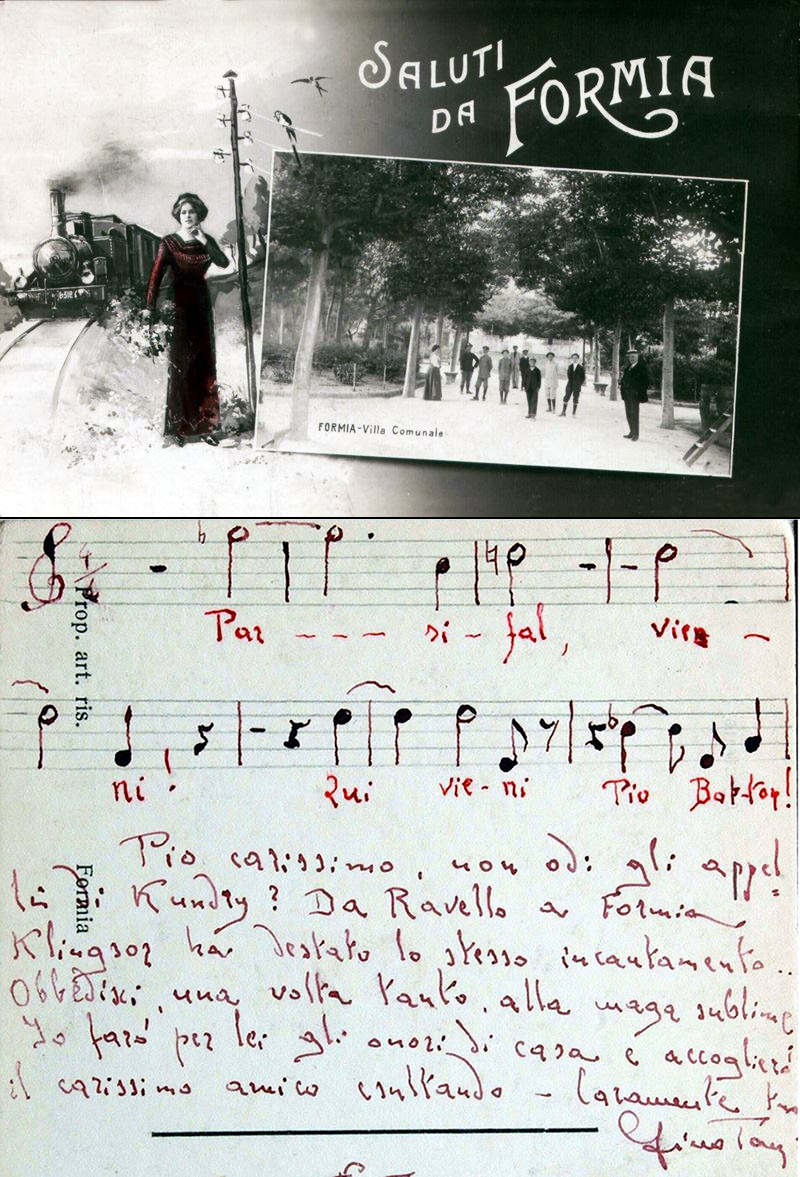 SALUTI
DA FORMIA
FORMIA-Villa Comunale
Par - - - si - fal, vie -
ni! Qui vie - ni Pio
Prop. art. ris.
Formia
Pio carissimo, non odi gli appel=
li di Kundry? Da Ravello a Formia
Klingsor ha destato lo stesso incantamento..
Obbedisci, una volta tanto, alla maga sublime
Io farò per lei gli onori di casa e accoglierò
il carissimo amico esultando - Caramente tuo